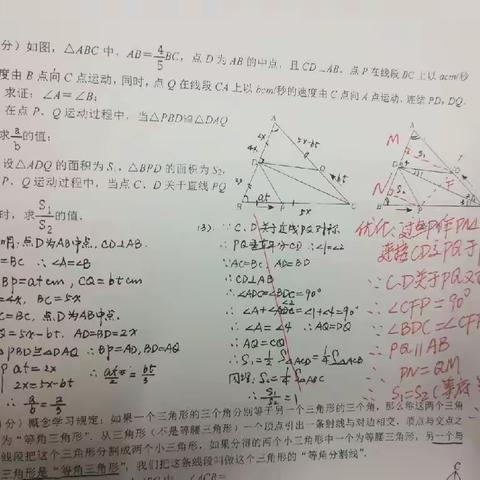 分）如图，△ABC 中，AB=4/5BC，点 D 为 AB 的中点，且 CD⊥AB，点 P 在线段 BC 上以 acm/秒
度由 B 点向 C 点运动，同时，点 Q 在线段 CA 上以 bcm/秒的速度由 C 点向 A 点运动，连结 PD，DQ．
求证：∠A=∠B；
在点 P、Q 运动过程中，当△PBD≌△DAQ
求a/b的值；
设△ADQ 的面积为 S₁，△BPD 的面积为 S₂，
P、Q 运动过程中，当点 C、D 关于直线 PQ
时，求S₁/S₂的值．
明：点D为AB中点，CD⊥AB．
=BC ∴∠A=∠B
BP=atcm，CQ=btcm
=4x，BC=5x
=BC，点D为AB中点．
Q=5x-bt．AD=BD=2x
PBD≌△DAQ ∴BP=AD，BD=AQ
at=2x
2x=5x-bt
∴ at/2=bt/3
∴ a/b=2/3
(3) ∵C、D关于直线PQ对称
∴PQ垂直平分CD ∴∠1=∠2
∵AC=BC，AD=BD
∴CD⊥AB
∴∠ADC=∠BDC=90°
∴∠A+∠ADC=∠1+∠4=90°
∴∠A=∠4 ∴AQ=DQ
∴AQ=CQ
∴S₁=1/2S△ACD=1/4S△ACB
同理：S₂=1/4S△ABC
∴S₁/S₂=1
A
4x
5x-bt
Q
bt
D
2x
at
B
P
5x
C
A
M
S₁
Q
D
N
S₂
F
优化：过
连接CD交PQ于
∵C、D关于PQ
∴∠CFP=90°
∴∠BDC=∠CFP
∴PQ∥AB
∴PN=QM
∴S₁=S₂
分）概念学习规定：如果一个三角形的三个角分别等于另一个三角形的三个角，那么称这两个三角
为“等角三角形”．从三角形（不是等腰三角形）一个顶点引出一条射线与对边相交，顶点与交点之
线段把这个三角形分割成两个小三角形，如果分得的两个小三角形中一个为等腰三角形，另一个与
三角形是“等角三角形”，我们把这条线段叫做这个三角形的“等角分割线”．
C